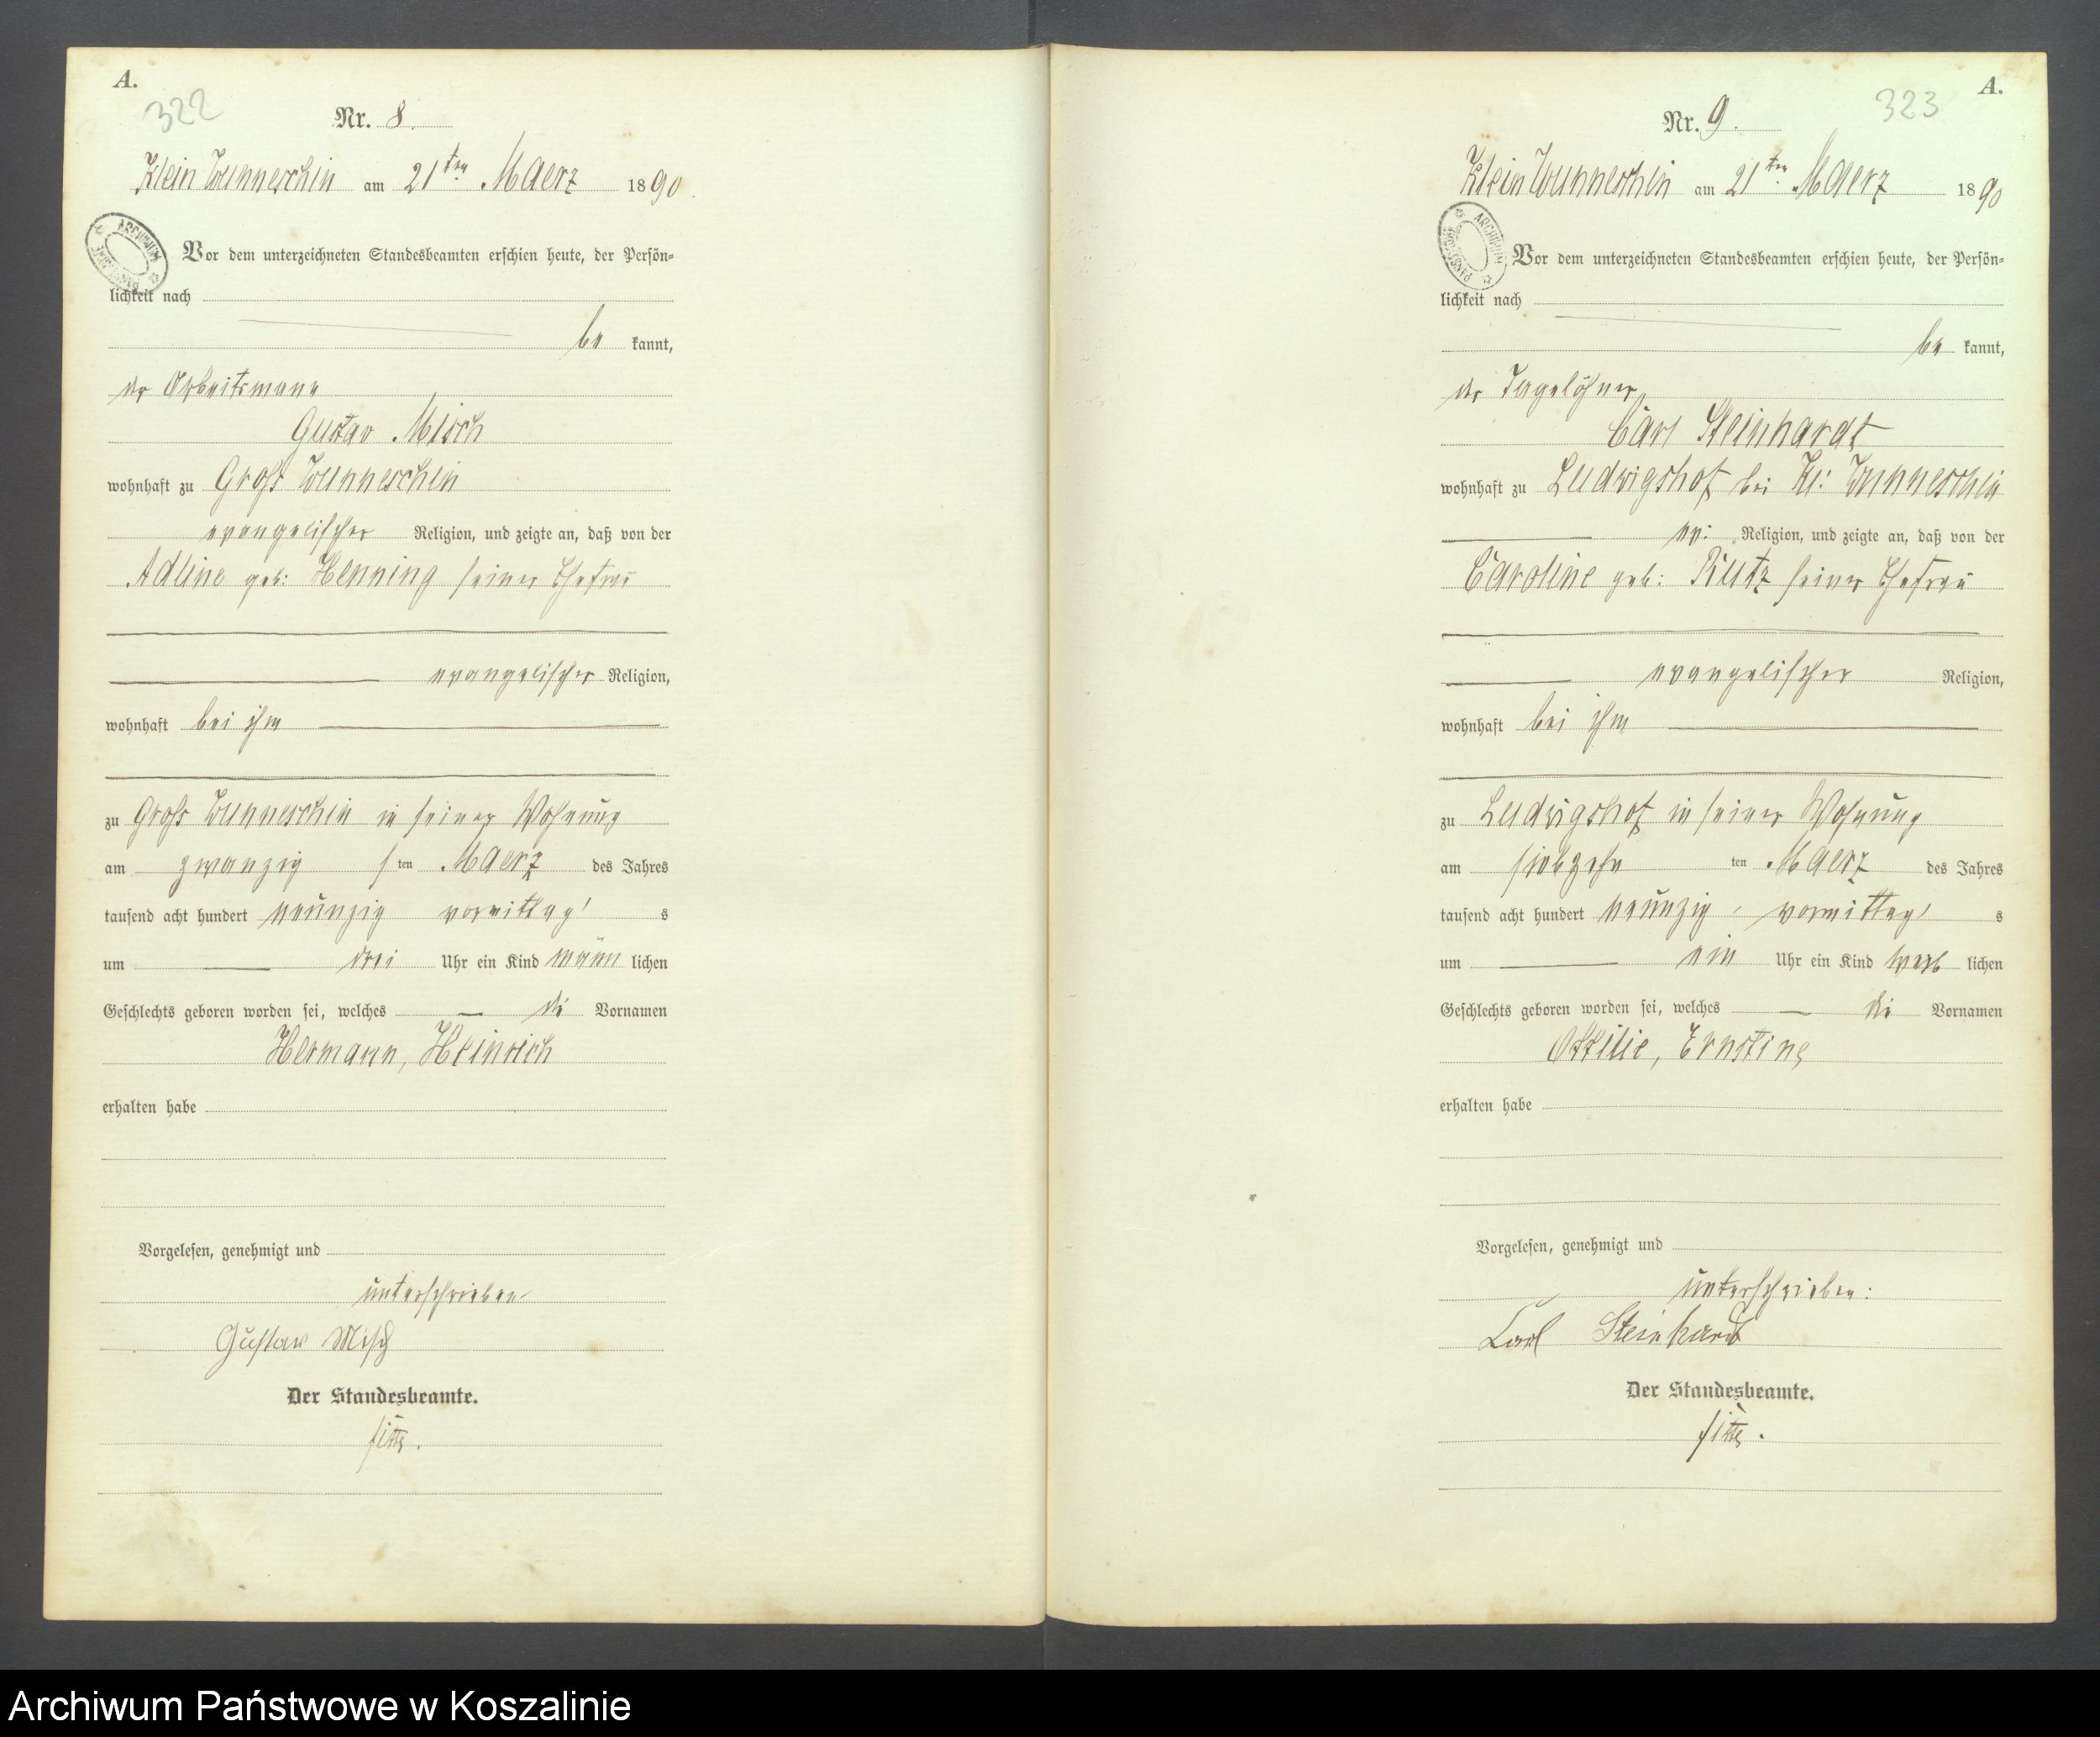 A.
322
Nr. 8.
Klein Wunneschin am 21ten Maerz 1890
ARCHIWUM PAŃSTWOWE
Vor dem unterzeichneten Standesbeamten erschien heute, der Persön=
lichkeit nach
be kannt,
der Arbeitsmann
Gustav Misch
wohnhaft zu Groß Wunneschin
evangelischer Religion, und zeigte an, daß von der
Adline geb: Henning seiner Ehefrau
evangelischer Religion,
wohnhaft bei ihm
zu Groß Wunneschin in seiner Wohnung
am zwanzig s ten Maerz des Jahres
tausend acht hundert neunzig vormittag s
um drei Uhr ein Kind männ lichen
Geschlechts geboren worden sei, welches die Vornamen
Hermann, Heinrich
erhalten habe
Vorgelesen, genehmigt und
unterschrieben
Gustav Misch
Der Standesbeamte.
A.
323
Nr. 9.
Klein Wunneschin am 21ten Maerz 1890
ARCHIWUM PAŃSTWOWE
Vor dem unterzeichneten Standesbeamten erschien heute, der Persön=
lichkeit nach
be kannt,
der Tagelöhner
Carl Steinhardt
wohnhaft zu Ludwigshof bei Kl: Wunneschin
ev: Religion, und zeigte an, daß von der
Caroline geb: seiner Ehefrau
evangelischer Religion,
wohnhaft bei ihm
zu Ludwigshof in seiner Wohnung
am siebzehn ten Maerz des Jahres
tausend acht hundert neunzig vormittag s
um ein Uhr ein Kind weib lichen
Geschlechts geboren worden sei, welches die Vornamen
Ottilie, Ernstine
erhalten habe
Vorgelesen, genehmigt und
unterschrieben:
Carl Steinhardt
Der Standesbeamte.
Archiwum Państwowe w Koszalinie